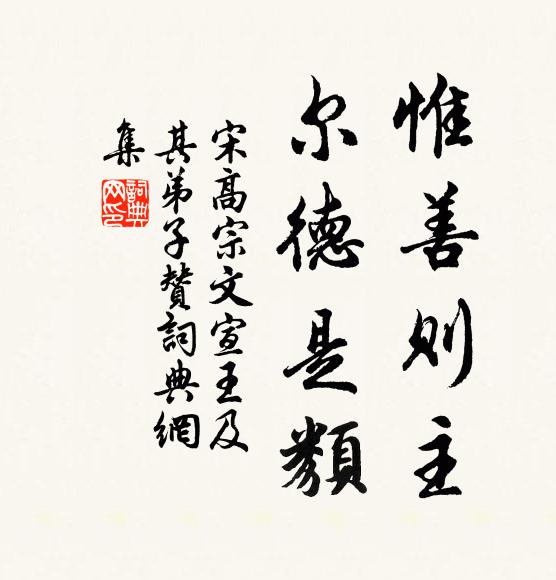 惟善则主
尔德是类
宋高宗文宣王及
其弟子赞詞典網
集
詞典网印